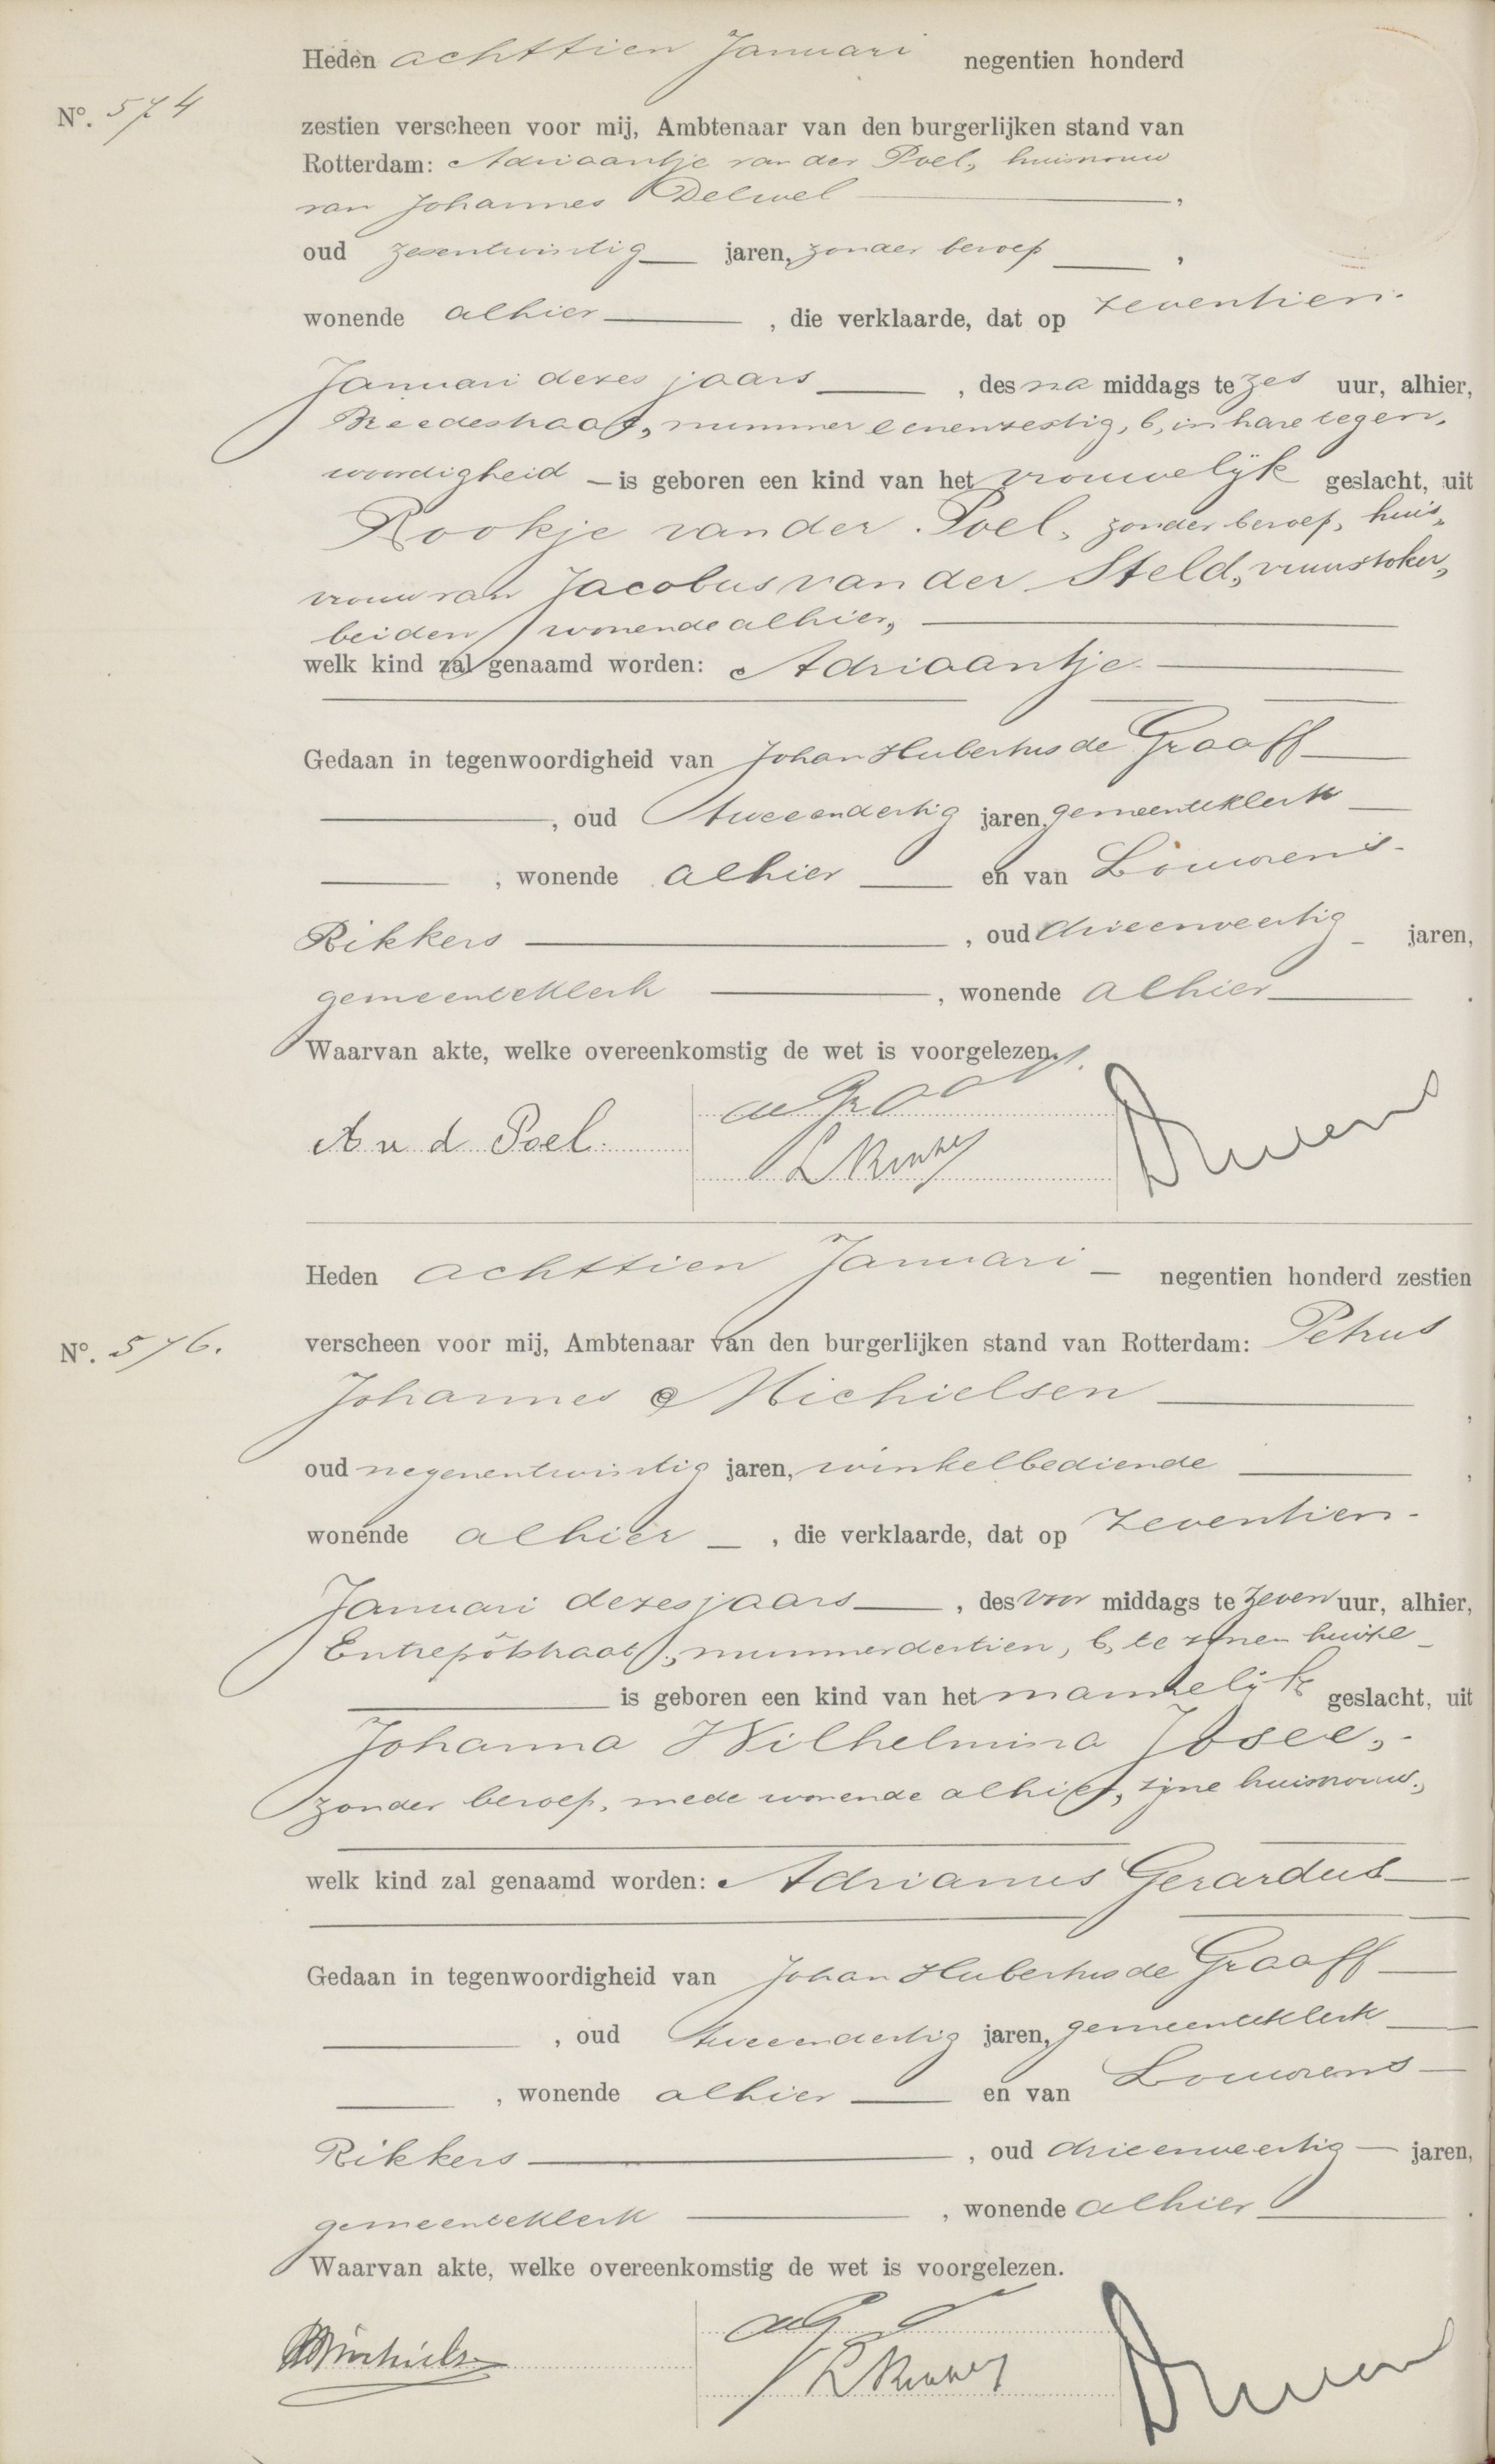 Heden achttien Januari negentien honderd
No. 574
zestien verscheen voor mij, Ambtenaar van den burgerlijken stand van
Rotterdam: Adriaantje van der Poel, huisvrouw
van Johannes Delwel,
oud zesentwintig jaren, zonder beroep,
wonende alhier, die verklaarde, dat op zeventien
Januari dezes jaars, des na middags te zes uur, alhier,
Breedestraat, nummer eenenzestig, b, in hare tegen„
woordigheid is geboren een kind van het vrouwelijk geslacht, uit
Rookje van der Poel, zonder beroep, huis„
vrouw van Jacobus van der Steld, vuurstoker,
beiden wonende alhier,
welk kind zal genaamd worden: Adriaantje
Gedaan in tegenwoordigheid van Johan Hubertus de Graaff
, oud tweeendertig jaren, gemeenteklerk
, wonende alhier en van Louwrens
Rikkers, oud drieenveertig jaren,
gemeenteklerk, wonende alhier.
Waarvan akte, welke overeenkomstig de wet is voorgelezen.
de Graaff
A v d Poel.
L Rikkers
Heden achttien Januari negentien honderd zestien
No. 576.
verscheen voor mij, Ambtenaar van den burgerlijken stand van Rotterdam: Petrus
Johannes Michielsen,
oud negenentwintig jaren, winkelbediende,
wonende alhier, die verklaarde, dat op zeventien
Januari dezes jaars, des voor middags te zeven uur, alhier,
Entrepôtstraat, nummer dertien, b, te zijnen huize
is geboren een kind van het mannelijk geslacht, uit
Johanna Wilhelmina Josee,
zonder beroep, mede wonende alhier, zijne huisvrouw,
welk kind zal genaamd worden: Adrianus Gerardus
Gedaan in tegenwoordigheid van Johan Hubertus de Graaff
, oud tweeendertig jaren, gemeenteklerk
, wonende alhier en van Louwrens
Rikkers, oud drieenveertig jaren,
gemeenteklerk, wonende alhier.
Waarvan akte, welke overeenkomstig de wet is voorgelezen.
Michielsen
L Rikkers